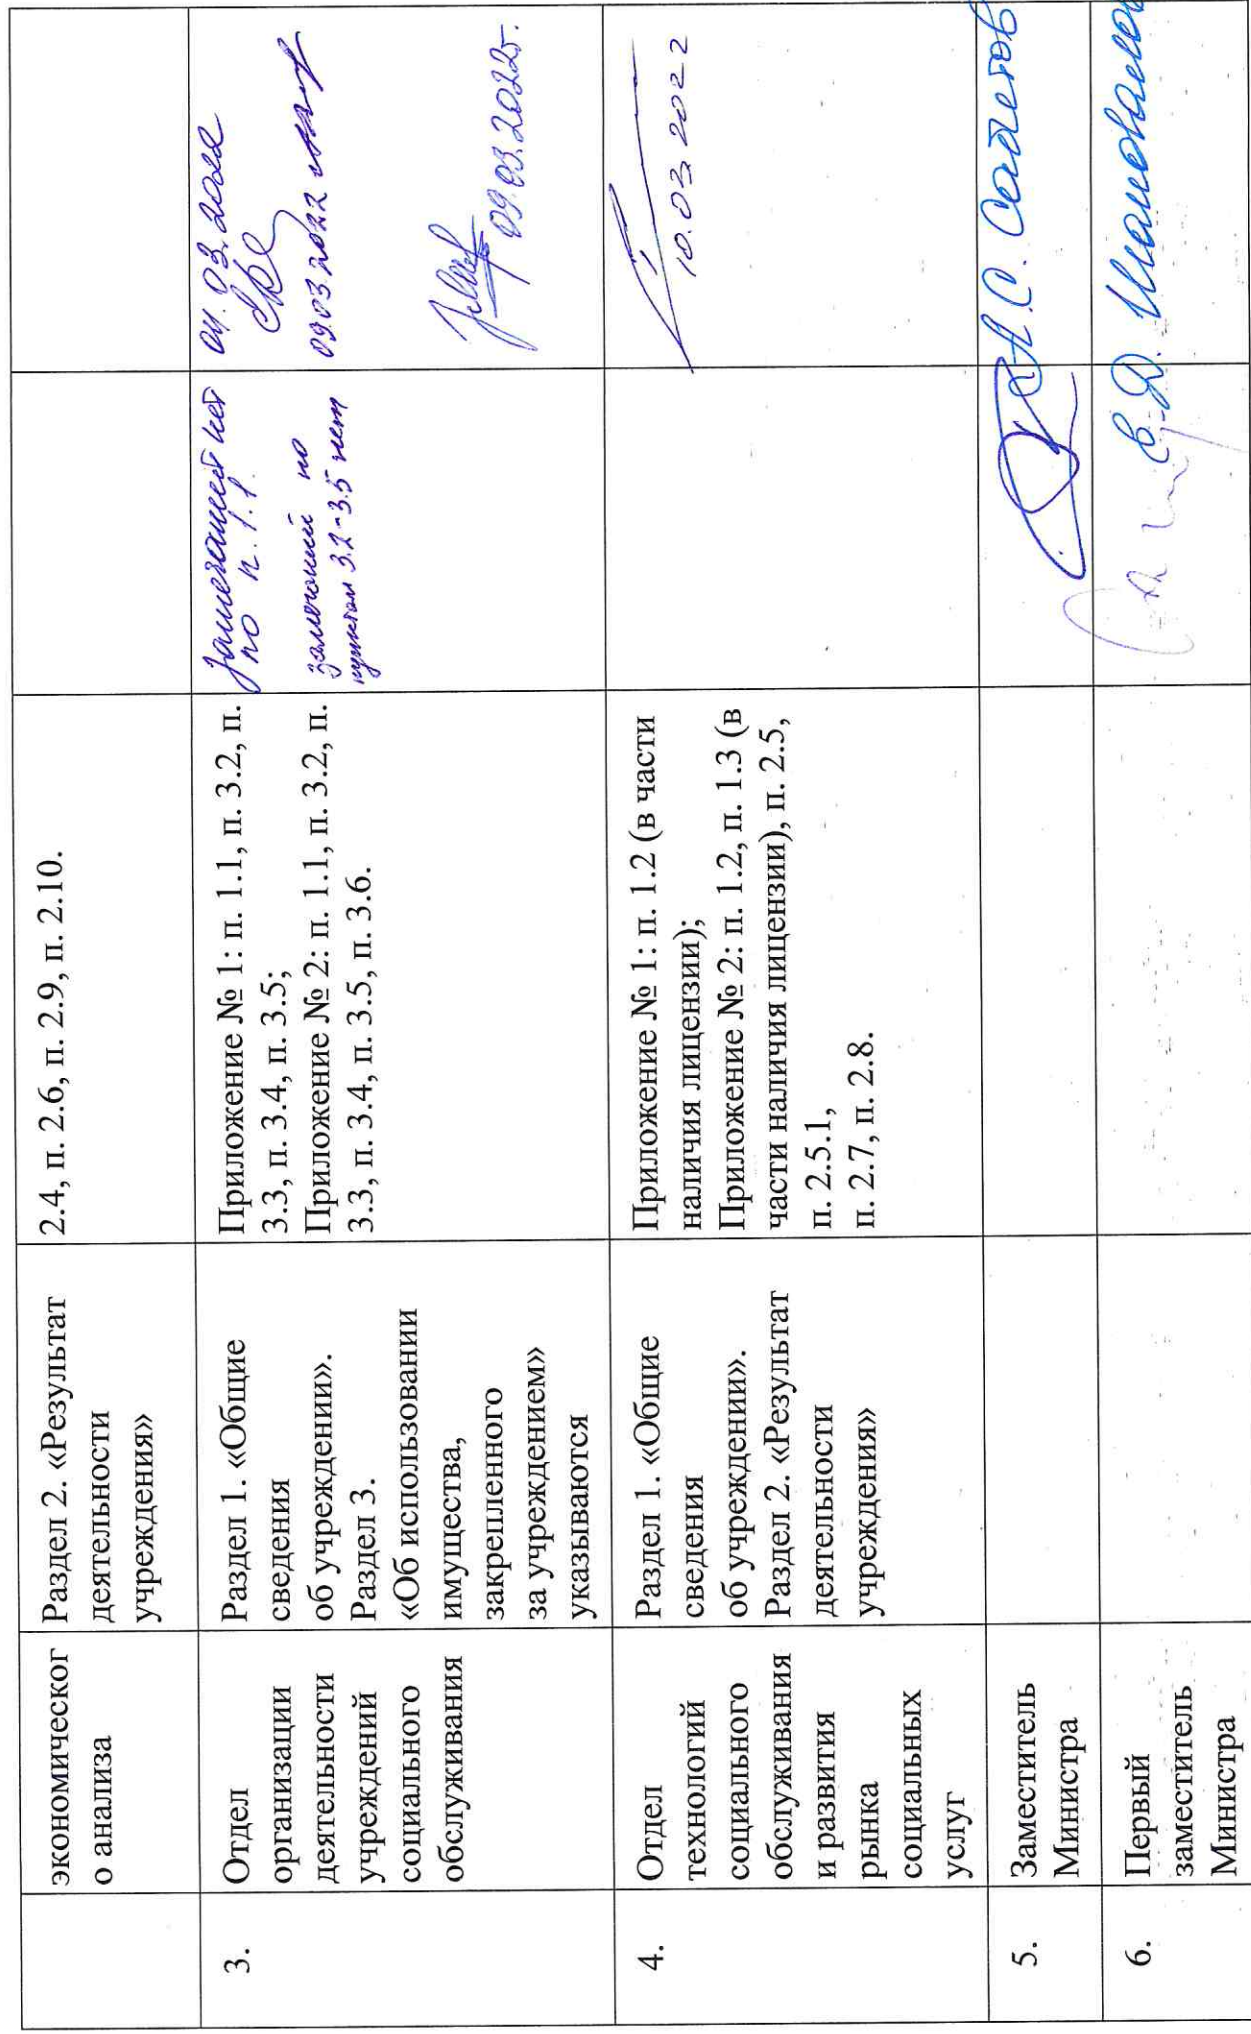 экономическог
о анализа
Раздел 2. «Результат
деятельности
учреждения»
2.4, п. 2.6, п. 2.9, п. 2.10.
3.
Отдел
организации
деятельности
учреждений
социального
обслуживания
Раздел 1. «Общие
сведения
об учреждении».
Раздел 3.
«Об использовании
имущества,
закрепленного
за учреждением»
указываются
Приложение № 1: п. 1.1, п. 3.2, п.
3.3, п. 3.4, п. 3.5;
Приложение № 2: п. 1.1, п. 3.2, п.
3.3, п. 3.4, п. 3.5, п. 3.6.
Замечаний нет
по п. 1.1.
замечаний по
пунктам 3.2-3.5 нет
04.03.2022
09.03.2022
09.03.2022г.
4.
Отдел
технологий
социального
обслуживания
и развития
рынка
социальных
услуг
Раздел 1. «Общие
сведения
об учреждении».
Раздел 2. «Результат
деятельности
учреждения»
Приложение № 1: п. 1.2 (в части
наличия лицензии);
Приложение № 2: п. 1.2, п. 1.3 (в
части наличия лицензии), п. 2.5,
п. 2.5.1,
п. 2.7, п. 2.8.
10.03.2022
5.
Заместитель
Министра
А.С.
6.
Первый
заместитель
Министра
В.Д.